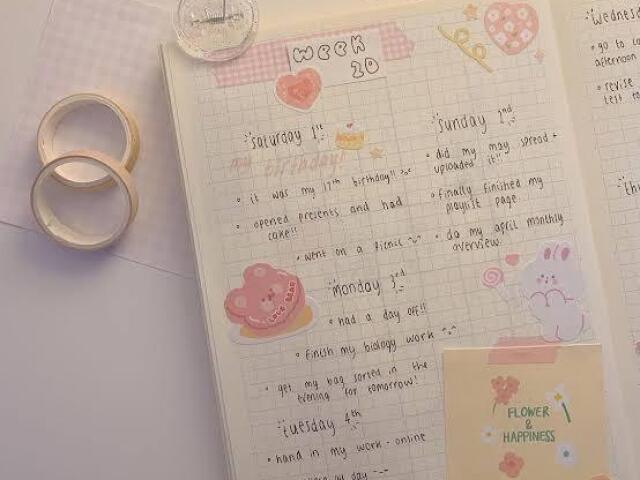 WEEK
20
Saturday 1st
my birthday!
• it was my 17th birthday!!
• opened presents and had
cake!!
• went on a picnic
Sunday 2nd
• did my may spread +
uploaded it!!
• finally finished my
playlist page.
• do my april monthly
overview.
LOVE BEAR
Monday 3rd
• had a day off!!
• finish my biology work
• get my bag sorted in the
evening for tomorrow!
Tuesday 4th
• hand in my work - online
day --
FLOWER
&
HAPPINESS
Wednesd
• go to
afternoon
• revise
test to
thu